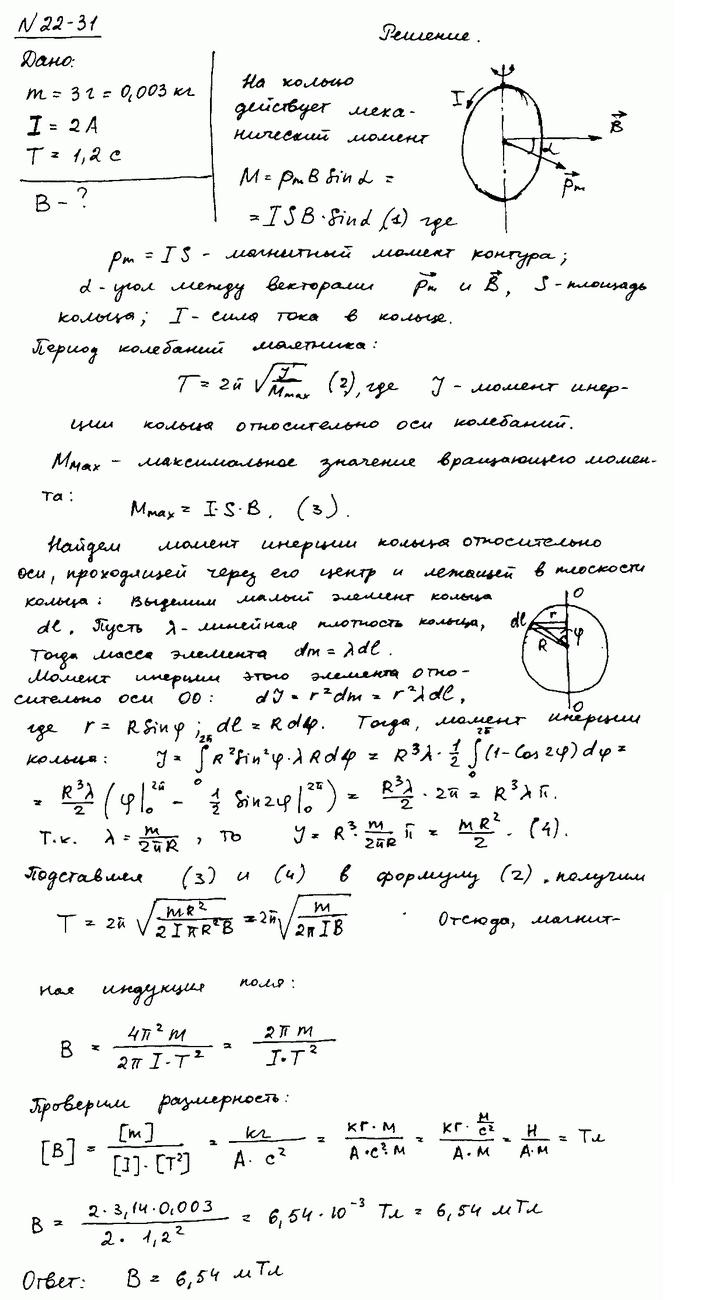 N 22-31
Решение.
Дано:
m = 3г = 0,003 кг
I = 2А
T = 1,2 с
B - ?
На кольцо
действует меха-
нический момент
M = pm B Sin α =
= I S B · Sin α (1) где
I
B
α
pm
pm = I S - магнитный момент контура;
α - угол между векторами pm и B, S - площадь
кольца; I - сила тока в кольце.
Период колебаний маятника:
T = 2π √(J/Mmax) (2), где J - момент инер-
ции кольца относительно оси колебаний.
Mmax - максимальное значение вращающего момен-
та:
Mmax = I·S·B. (3).
Найдем момент инерции кольца относительно
оси, проходящей через его центр и лежащей в плоскости
кольца: Выделим малый элемент кольца
dl. Пусть λ - линейная плотность кольца,
тогда масса элемента dm = λdl.
Момент инерции этого элемента отно-
сительно оси OO: dJ = r² dm = r² λdl,
O
dl
r
R
φ
O
где r = R Sin φ; dl = R dφ. Тогда, момент инерции
кольца: J = ∫₀^2π R² Sin² φ · λ R dφ = R³λ · 1/2 ∫₀^2π (1 - Cos 2φ) dφ =
= R³λ/2 (φ|₀^2π - 1/2 Sin 2φ|₀^2π) = R³λ/2 · 2π = R³λ π.
Т.к. λ = m/2πR, то J = R³ · m/2πR π = mR²/2. (4).
Подставляя (3) и (4) в формулу (2), получим
T = 2π √(mR²/2IπR²B) = 2π √(m/2πIB) Отсюда, магнит-
ная индукция поля:
B = 4π² m/2π I·T² = 2π m/I·T²
Проверим размерность:
[B] = [m]/[I]·[T²] = кг/А·с² = кг·м/А·с²·м = кг·м/с²/А·м = Н/А·м = Тл
B = 2·3,14·0,003/2·1,2² = 6,54·10⁻³ Тл = 6,54 мТл
Ответ: B = 6,54 мТл